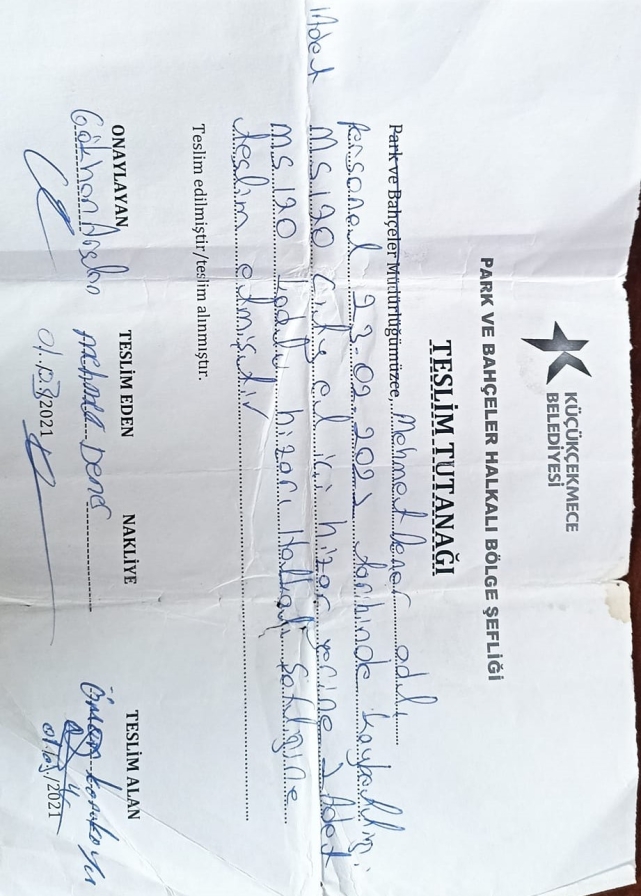 KÜÇÜKÇEKMECE
BELEDİYESİ
PARK VE BAHÇELER HALKALI BÖLGE ŞEFLİĞİ
TESLİM TUTANAĞI
Park ve Bahçeler Müdürlüğümüzce, Mehmet Dener adlı
personel 23.02.2021 tarihinde kaybettiği
1 Adet MS 190 el içi hizar yerine 1 Adet
MS 190 kodlu hizarı Halkalı Şefliğine
teslim etmiştir
Teslim edilmiştir/teslim alınmıştır.
ONAYLAYAN TESLİM EDEN NAKLİYE TESLİM ALAN
Gökhan Arslan Mehmet Dener
2021 01.03./2021